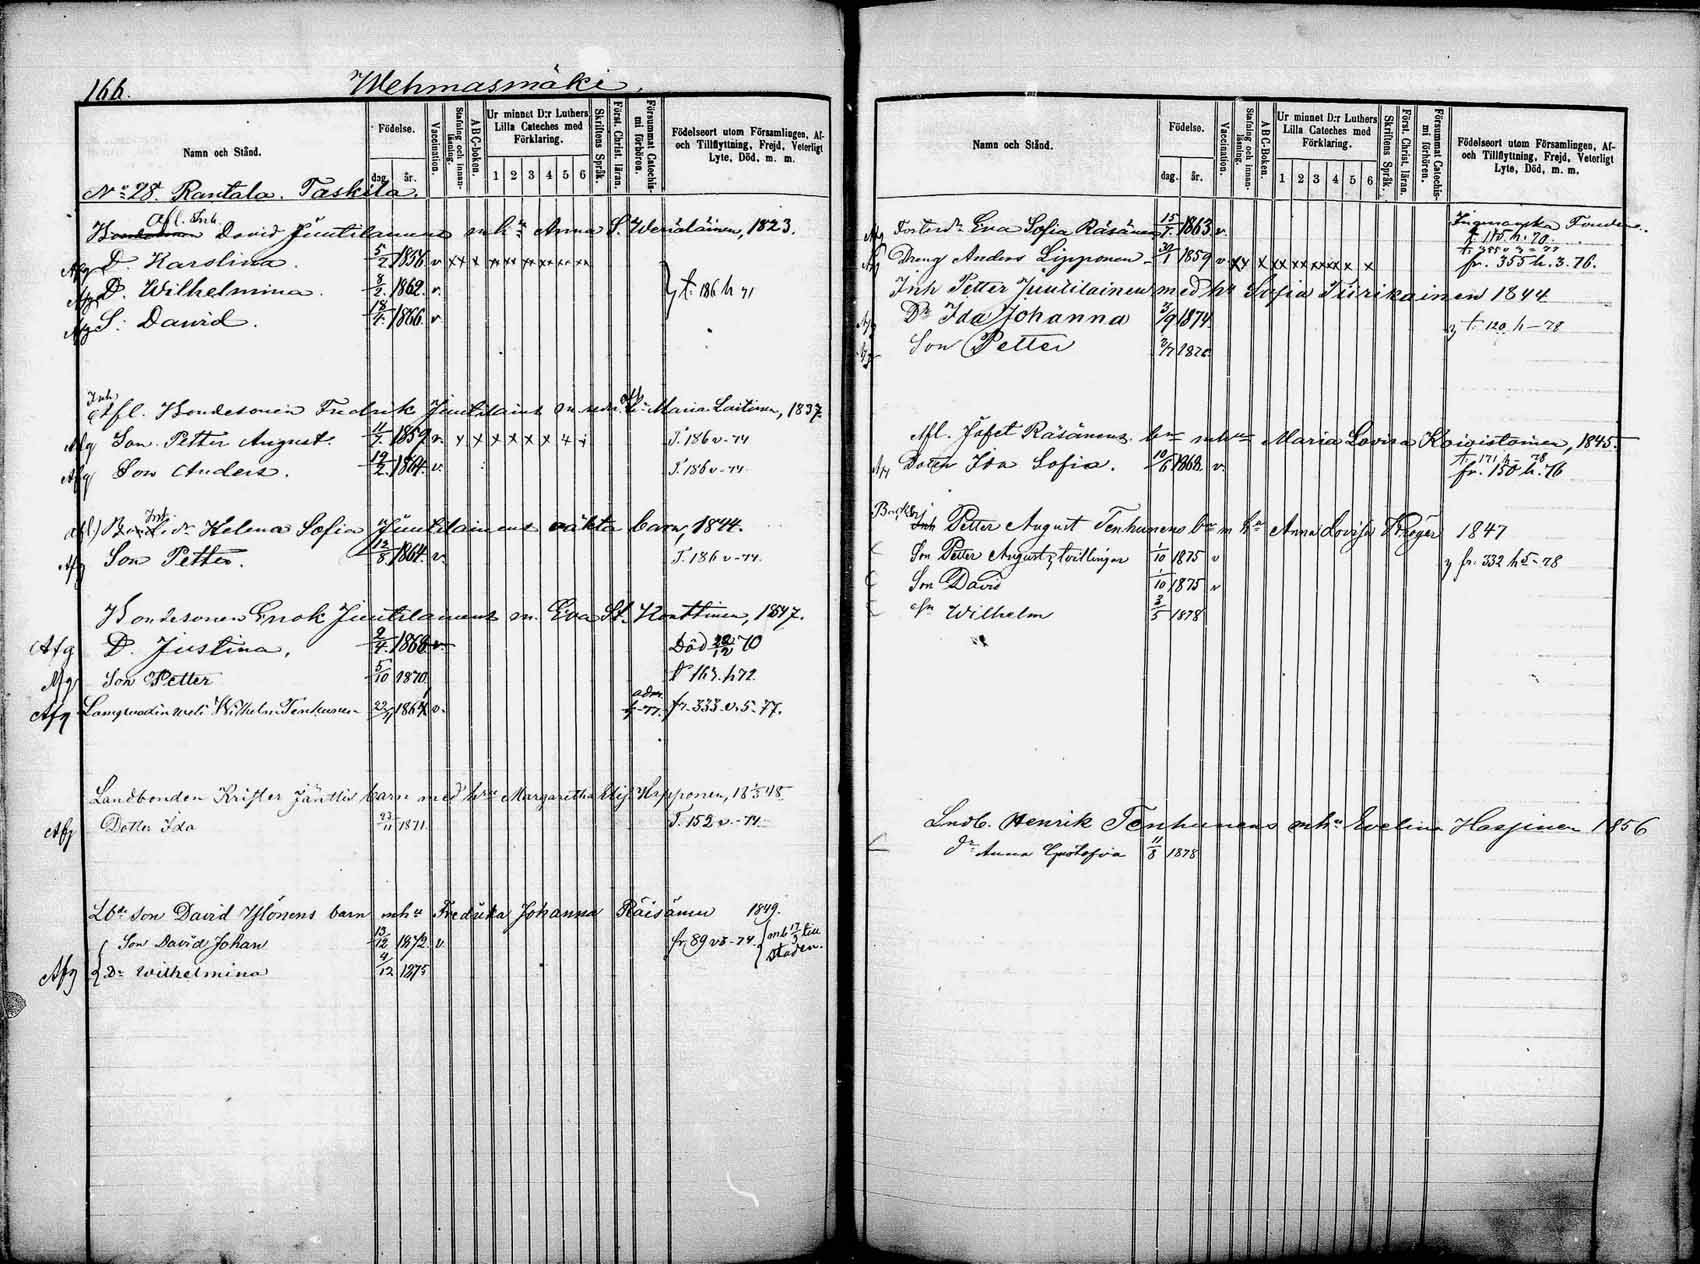 166. Wehmasmäki.
Namn och Stånd.
Födelse.
dag. år.
Vaccination.
Stafning och innanläsning.
ABC-boken.
Ur minnet D:r Luthers Lilla Cateches med Förklaring.
1 2 3 4 5 6
Skriftens Språk.
Först. Christ. läran.
Försummat Catechismi förhören.
Födelseort utom Församlingen, Af- och Tillflyttning, Frejd, Veterligt Lyte, Död, m. m.
No 28. Rantala. Taskila.
Afl. Inh.
David Juutilainens mhu Anna S. Weriäläinen, 1823.
Afg D. Karolina. 5/2 1858 v x x x x x x x x x x
Afg D. Wilhelmina. 8/2 1862. v. } t. 186 h 71
Afg S. David. 18/4 1866 v
Inh
Afl. Bondesonen Fredrik Juutilains m. Maria Laitinen, 1837.
Afg Son Petter August. 11/7 1859 v. x x x x x x
T. 186 v - 74
Afg Son Anders. 19/2 1864. v.
T. 186 v - 74
Helena Sofia Juutilainens oäkta barn, 1844.
Afg Son Petter. 12/8 1864. v.
T. 186 v - 74.
Bondesonen Enok Juutilainens m. Eva St. Konttinen, 1847.
Afg D. Justina. 2/4 1868 v. Död 22/12 70
Afg Son Petter 5/10 1870 t 163. h 72.
Afg Wilhelm Tenhunen 1864 v. adm. 77. fr. 333. v. 5. 77.
Landbonden Krister Jänttis barn med hru Margaretha Elis. 1848
Afg Dotter Ida 23/11 1871. T. 152 v. - 74.
Lbde son David Ylönens barn mhu Fredrika Johanna Räisänen 1849.
Son David Johan 13/12 1872. v. fr. 89 v 3 - 74. till staden.
Afg Dr Wilhelmina 4/12 1875
Namn och Stånd.
Födelse.
dag. år.
Vaccination.
Stafning och innanläsning.
ABC-boken.
Ur minnet D:r Luthers Lilla Cateches med Förklaring.
1 2 3 4 5 6
Skriftens Språk.
Först. Christ. läran.
Försummat Catechismi förhören.
Födelseort utom Församlingen, Af- och Tillflyttning, Frejd, Veterligt Lyte, Död, m. m.
Afg Fosterdr Eva Sofia Räsänen 15/5 1863 v. t. 115. h. 70
Afg Dreng Anders Lipponen 30/1 1859 v. x x x x x x x x x x fr. 355 h. 3. 76.
Inh Petter Juutilainen med hu Sofia Tiirikainen 1844
Afg Dr Ida Johanna 3/9 1874. } t. 120. h - 78
Son Petter
Afl. Jafet Räsänens bn mhu Maria Lovisa Koivistoinen, 1845.
Afg Dotter Ida Sofia. 10/6 1868. v. t. 171 h - 78
fr. 150 h. 76
Inh Petter August Tenhunens bn m hu Anna Lovisa Kröger 1847
Son Petter August } tvillingar 1/10 1875 v } fr. 332 h 5 - 78
Son David 1/10 1875 v
Sn Wilhelm 3/5 1878
Lndb. Henrik Tenhunens mhu Evelina 1856
dr Anna Gustafva 11/8 1878